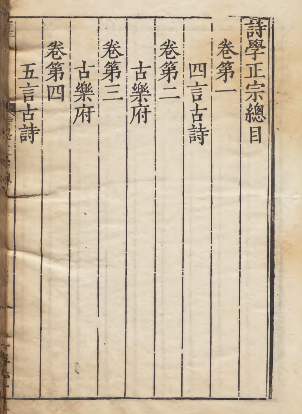 詩學正宗總目
卷第一
四言古詩
卷第二
古樂府
卷第三
古樂府
卷第四
五言古詩